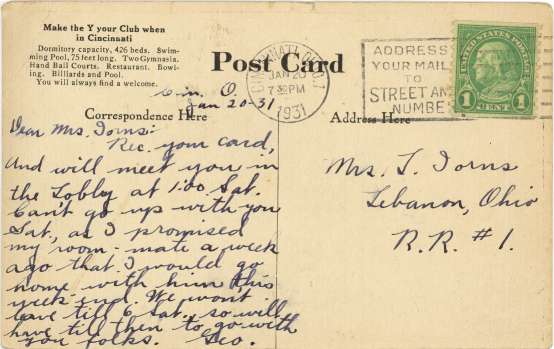 Make the Y your Club when
in Cincinnati
Dormitory capacity, 426 beds. Swim-
ming Pool, 75 feet long. Two Gymnasia.
Hand Ball Courts. Restaurant. Bowl-
ing. Billiards and Pool.
You will always find a welcome.
Post Card
CINCINNATI, OHIO.
JAN 20
7 PM
1931
ADDRESS
YOUR MAIL
TO
STREET AND
NUMBER
UNITED STATES POSTAGE
1 CENT 1
Cin. O.
Jan 20-31
Correspondence Here
Address Here
Dear Mrs. Iorns:
Rec. your card,
and will meet you in
the Lobby at 1:00 Sat.
Can't go up with you
Sat., as I promised
my room-mate a week
ago that I would go
home with him this
week-end. We won't
leave till 6 Sat., so will
have till then to go with
you folks. Geo.
Mrs. T. Iorns
Lebanon, Ohio
R.R. #1.